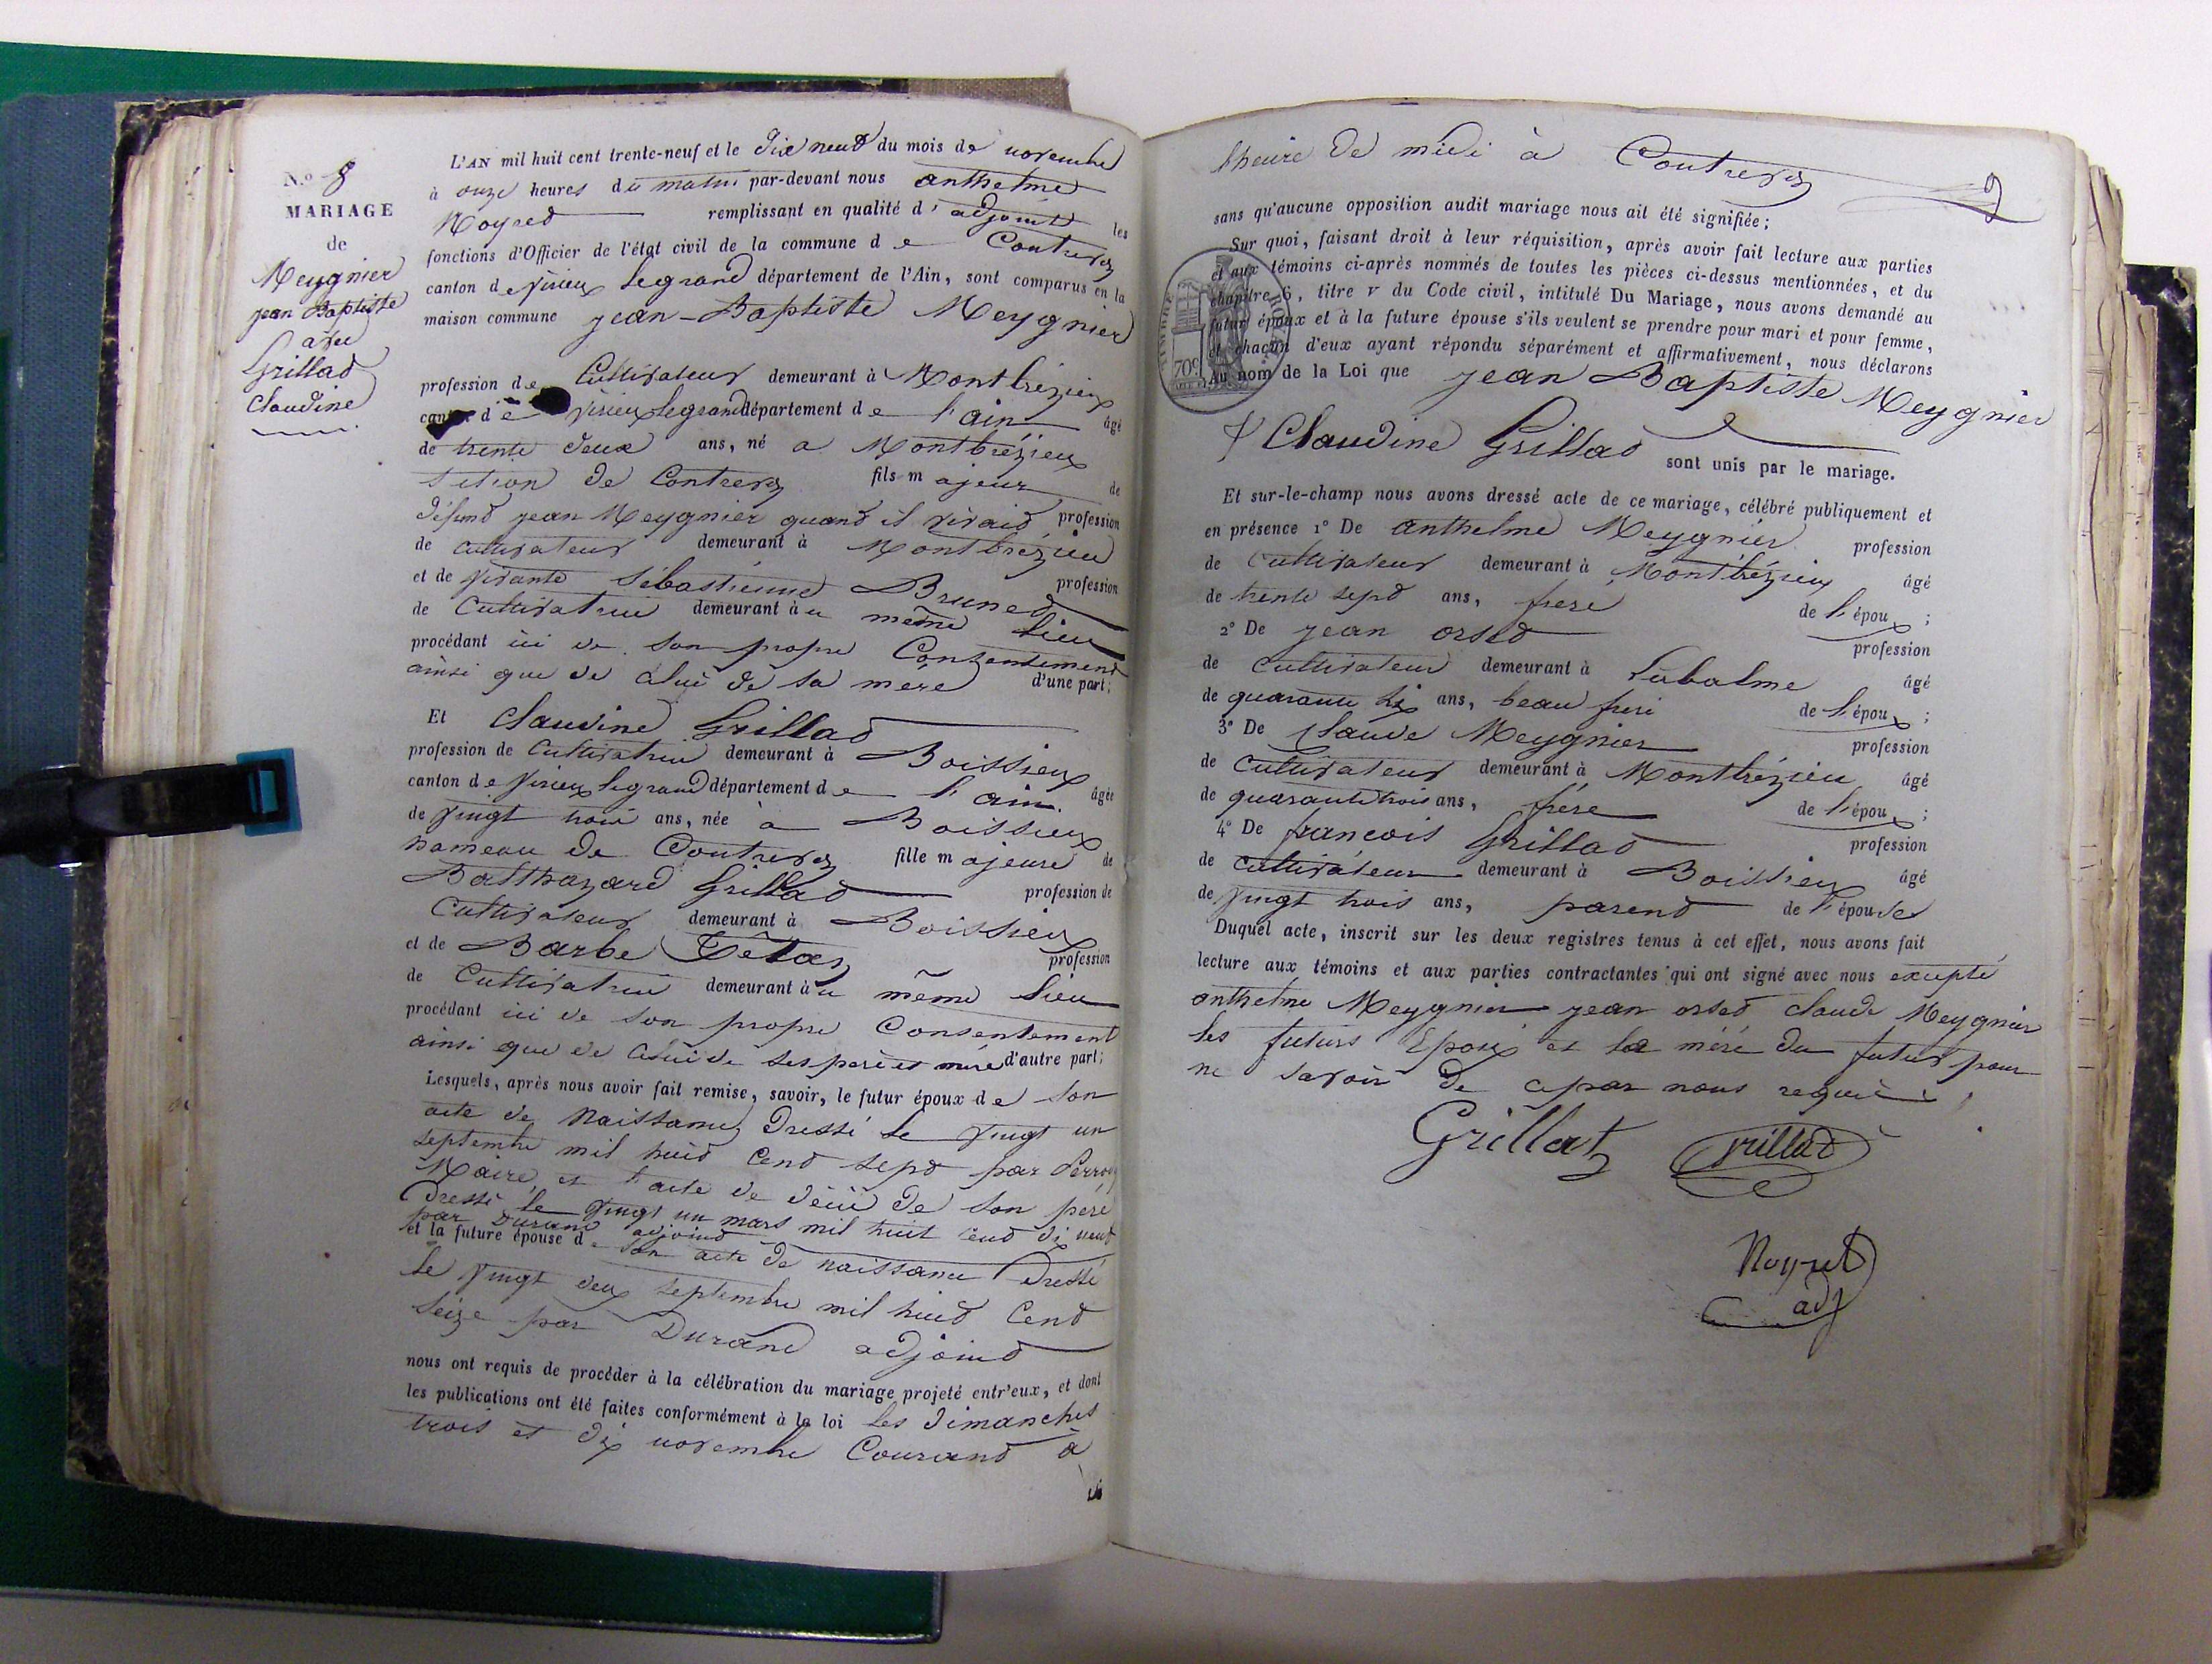 N.o 8
MARIAGE
de
Meygnier
jean Baptiste
avec
Grillad
Claudine
L'AN mil huit cent trente-neuf et le dix neuf du mois de novembre
à onze heures du matin par-devant nous anthelme
Noyred remplissant en qualité d'adjoint les
fonctions d'Officier de l'état civil de la commune de Contrevoz
canton de Virieux legrand département de l'Ain, sont comparus en la
maison commune jean-Baptiste Meygnier
profession de Cultivateur demeurant à Montbrézieux
canton de Virieux legrand département de l'ain âgé
de trente deux ans, né a Montbrézieux
section de Contrevoz fils majeur de
défund jean Meygnier quand il vivaid profession
de cultivateur demeurant à Montbrézieu
et de vivante Sébastienne Bruned profession
de Cultivatrice demeurant au même lieu
procédant ici de son propre Consentement
ainsi que de celui de sa mere d'une part;
Et Claudine Grillad
profession de Cultivatrice demeurant à Boissieux
canton de Virieux legrand département de l'ain. âgée
de vingt trois ans, née à Boissieux
hameau de Contrevoz fille majeure de
Balthazard Grillad profession de
Cultivateur demeurant à Boissieu
et de Barbe profession
de Cultivatrice demeurant au même lieu
procédant ici de son propre Consentement
ainsi que de celui de ses pere et mère d'autre part;
Lesquels, après nous avoir fait remise, savoir, le futur époux de son
acte de Naissance dressé le vingt un
septembre mil huid Cend sept par
Maire, et l'acte de décè de son père
dressé le vingt un mars mil huit cend di neuf
par Durand adjoind
et la future épouse de son acte de naissance dressé
le vingt deux septembre mil huid Cend
seize par Durand adjoind
nous ont requis de procéder à la célébration du mariage projeté entr'eux, et dont
les publications ont été faites conformément à la loi les dimanches
trois et dix novembre Courand à
l'heure de midi à Contrevoz
9
sans qu'aucune opposition audit mariage nous ait été signifiée;
Sur quoi, faisant droit à leur réquisition, après avoir fait lecture aux parties
et aux témoins ci-après nommés de toutes les pièces ci-dessus mentionnées, et du
chapitre 6, titre V du Code civil, intitulé Du Mariage, nous avons demandé au
futur époux et à la future épouse s'ils veulent se prendre pour mari et pour femme,
et chacun d'eux ayant répondu séparément et affirmativement, nous déclarons
Au nom de la Loi que jean Baptiste Meygnier
TIMBRE ROYAL
70c
& Claudine Grillad sont unis par le mariage.
Et sur-le-champ nous avons dressé acte de ce mariage, célébré publiquement et
en présence 1° De anthelme Meygnier profession
de Cultivateur demeurant à Montbrézieux âgé
de trente sepd ans, frere de l'époux;
2° De jean orsed profession
de Cultivateur demeurant à Labalme âgé
de quarante six ans, beau frere de l'époux;
3° De Claude Meygnier profession
de Cultivateur demeurant à Montbrézieu âgé
de quarante trois ans, frère de l'époux;
4° De francois Grillad profession
de Cultivateur demeurant à Boissieu âgé
de vingt trois ans, parend de l'épouse
Duquel acte, inscrit sur les deux registres tenus à cet effet, nous avons fait
lecture aux témoins et aux parties contractantes qui ont signé avec nous excepté
anthelme Meygnier jean orsed claude Meygnier
les futurs Epoux et la mére du futur pour
ne savoir de ce par nous requi
Grillat Grillad
Noyret
adj